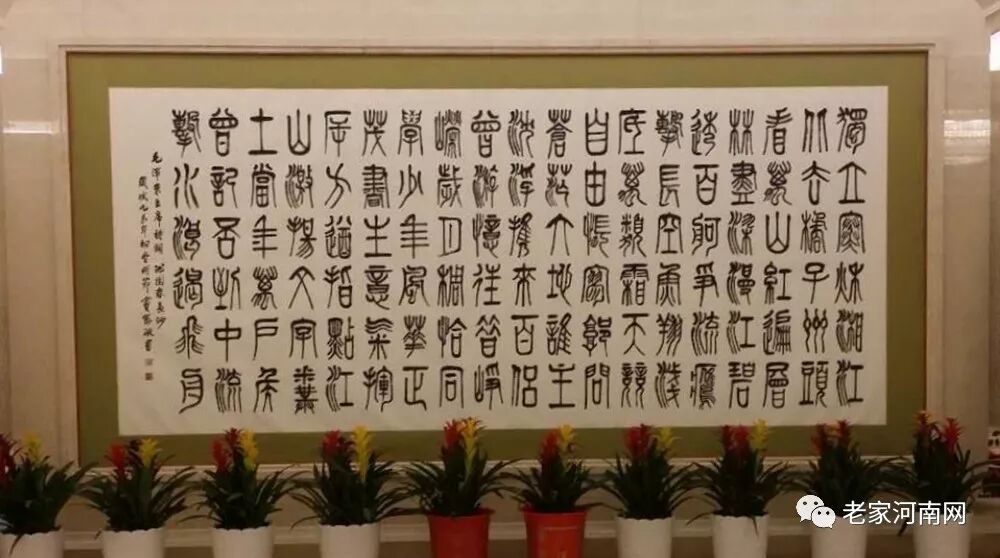 獨立寒秋湘江
北去橘子洲頭
看萬山紅遍層
林盡染漫江碧
透百舸爭流鷹
擊長空魚翔淺
底萬類霜天競
自由悵寥廓問
蒼茫大地誰主
沈浮攜來百侶
曾游憶往昔崢
嶸歲月稠恰同
學少年風華正
茂書生意氣揮
斥方遒指點江
山激揚文字糞
土當年萬戶侯
曾記否到中流
擊水浪遏飛舟
毛澤東主席詩詞 沁園春長沙
老家河南网